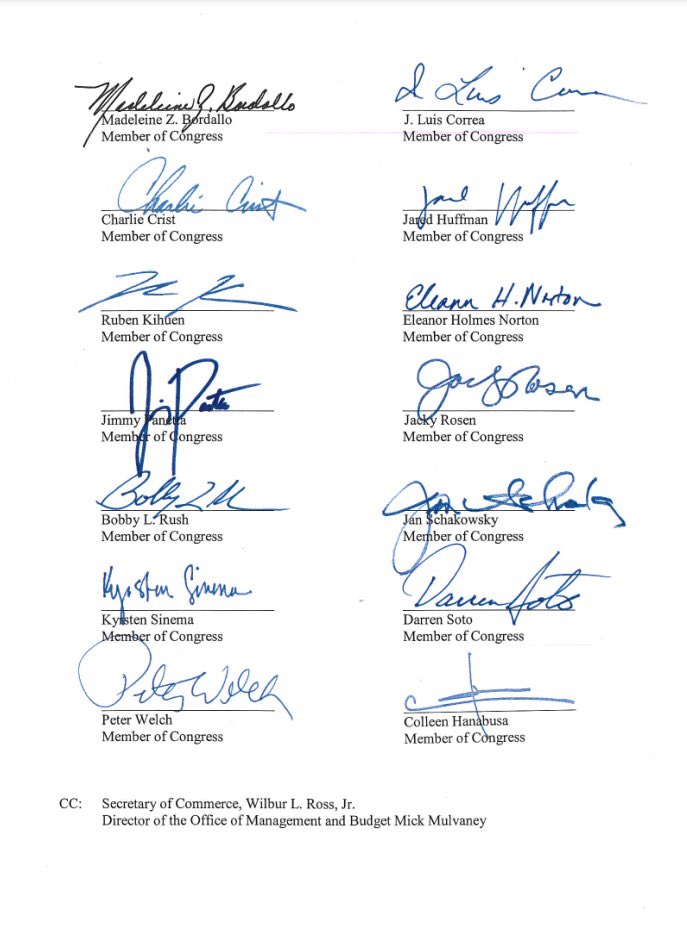 Madeleine Z. Bordallo
Madeleine Z. Bordallo
Member of Congress
J Luis Correa
J. Luis Correa
Member of Congress
Charlie Crist
Charlie Crist
Member of Congress
Jared Huffman
Jared Huffman
Member of Congress
Ruben Kihuen
Member of Congress
Eleanor H. Norton
Eleanor Holmes Norton
Member of Congress
Jimmy Panetta
Member of Congress
Jacky Rosen
Jacky Rosen
Member of Congress
Bobby L. Rush
Member of Congress
Jan Schakowsky
Jan Schakowsky
Member of Congress
Kyrsten Sinema
Kyrsten Sinema
Member of Congress
Darren Soto
Darren Soto
Member of Congress
Peter Welch
Peter Welch
Member of Congress
Colleen Hanabusa
Member of Congress
CC: Secretary of Commerce, Wilbur L. Ross, Jr.
Director of the Office of Management and Budget Mick Mulvaney